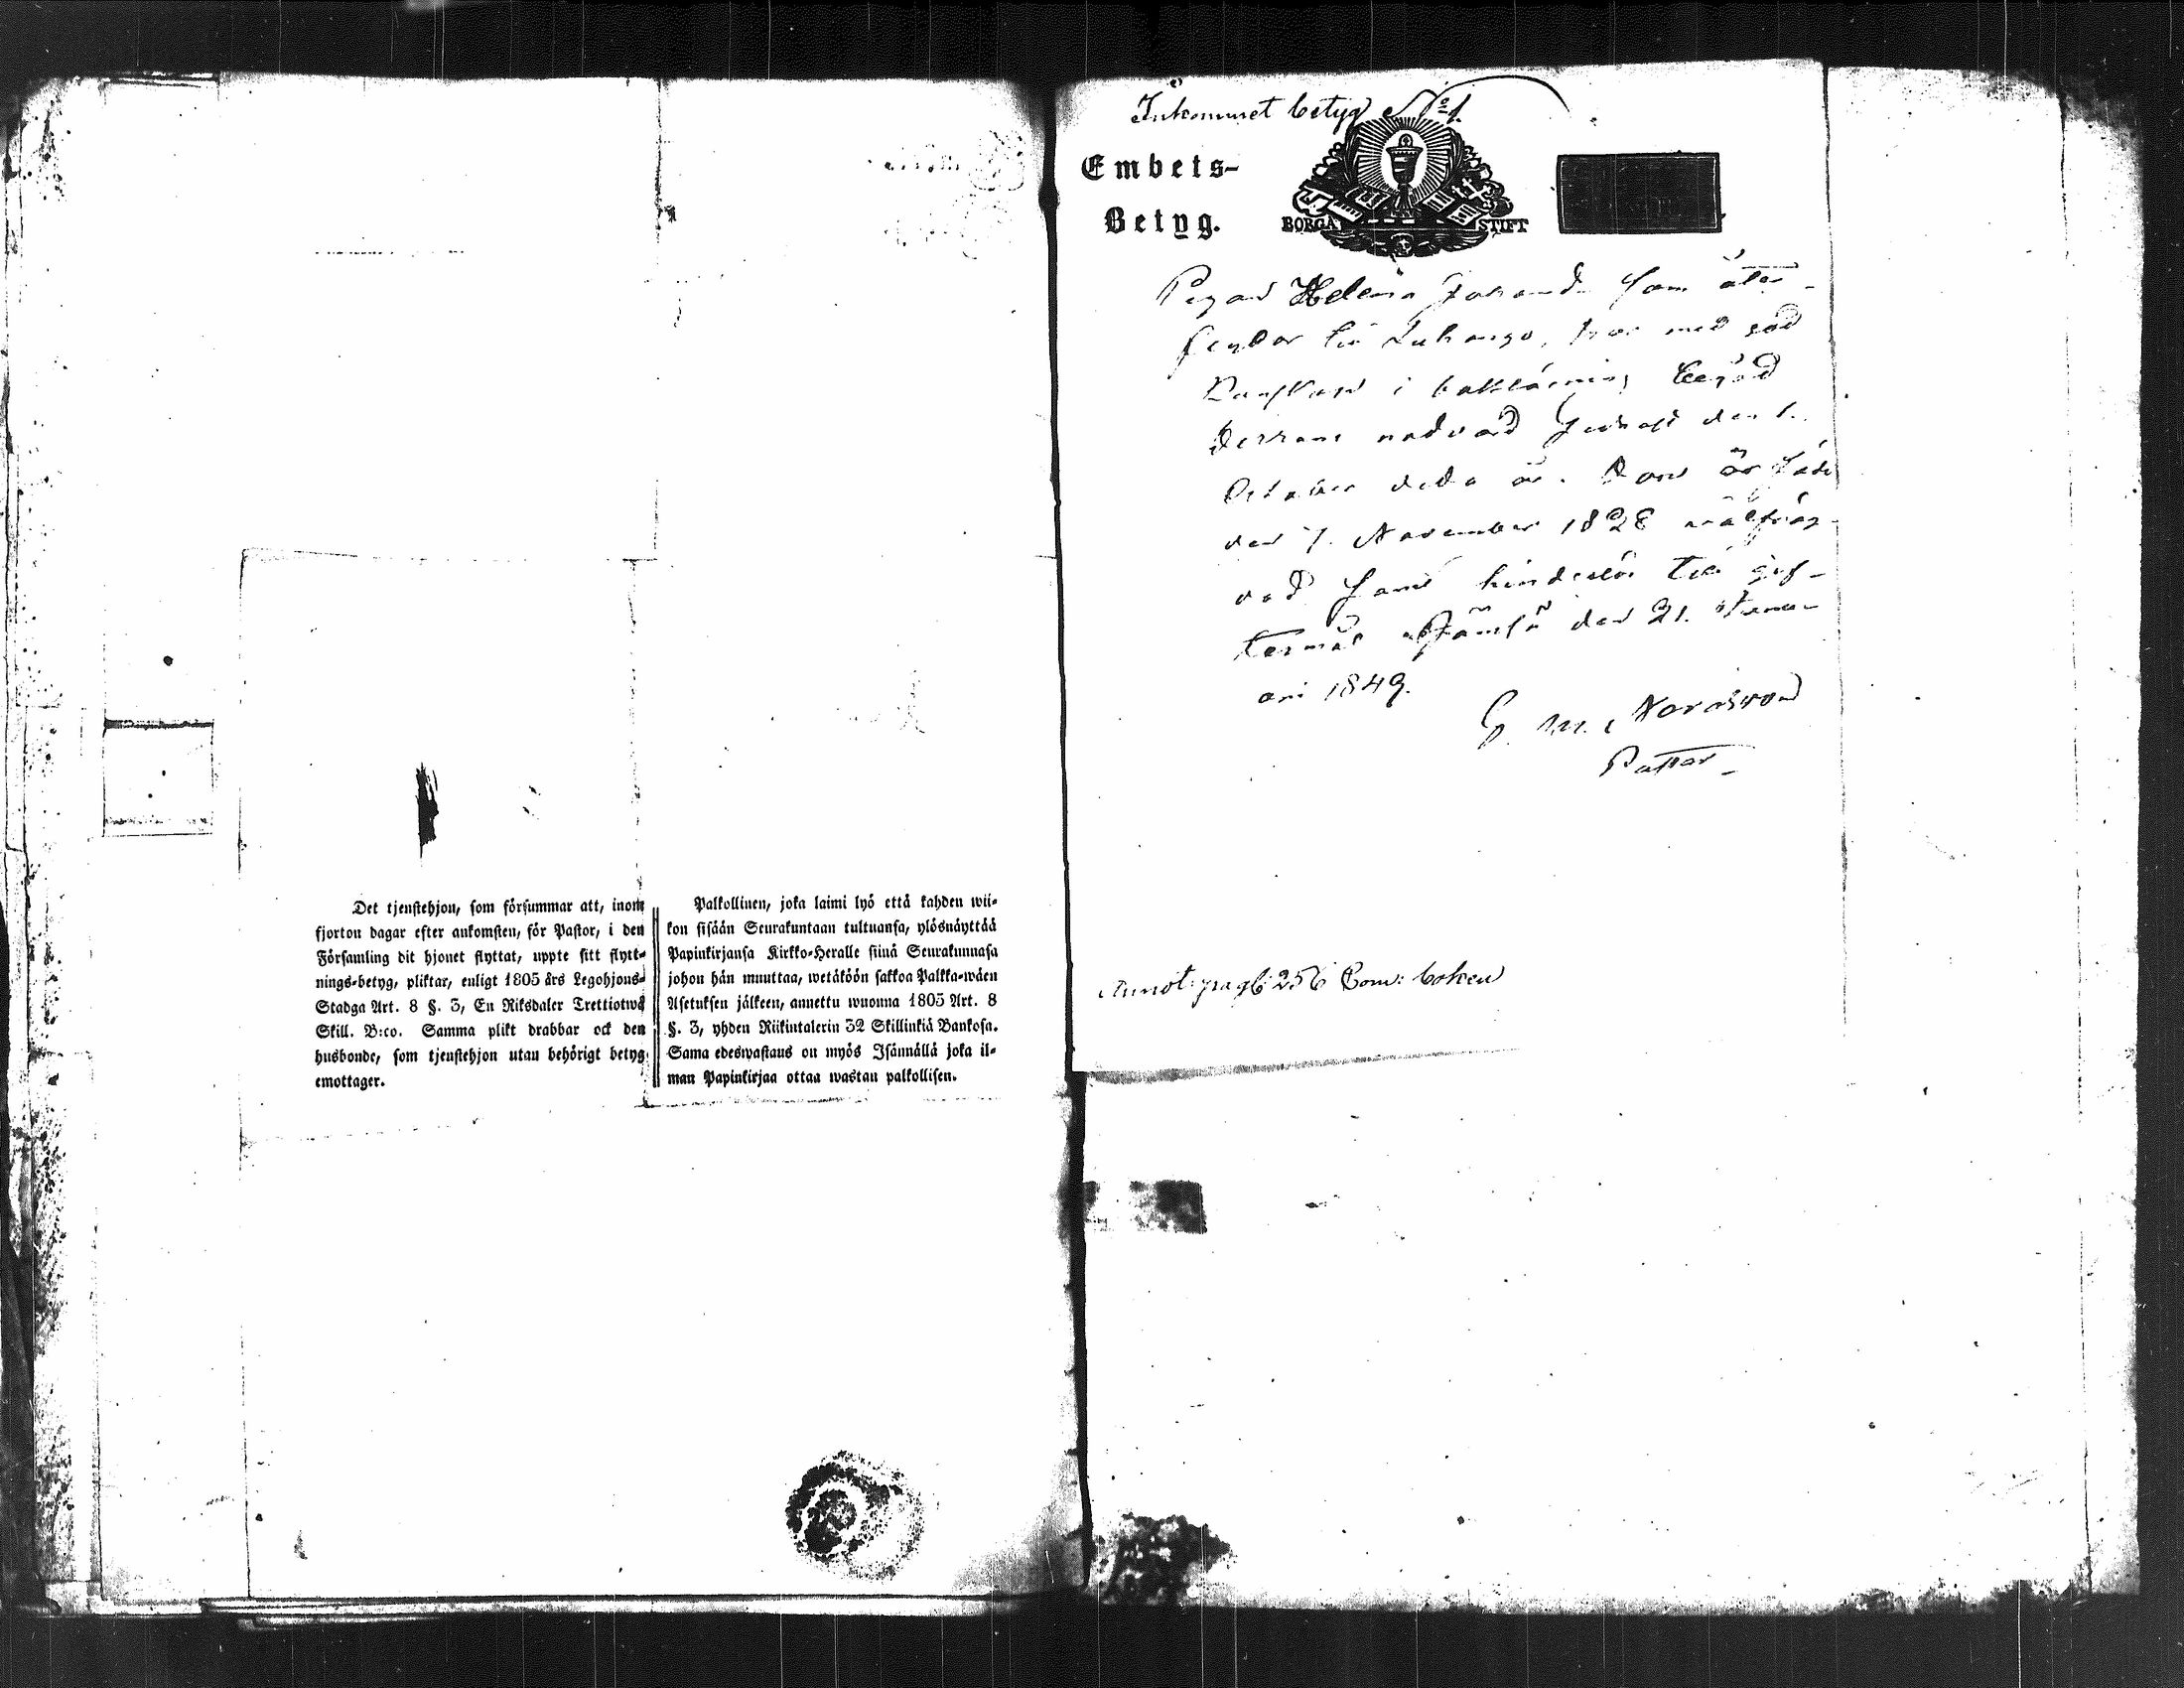 Det tjenstehjon, som försummar att, inom
fjorton dagar efter ankomsten, för Pastor, i den
Församling dit hjonet flyttat, uppte sitt flytt-
nings-betyg, pliktar, enligt 1805 års Legohjons-
Stadga Art. 8 §. 3, En Riksdaler Trettiotwå
Skill. B:co. Samma plikt drabbar ock den
husbonde, som tjenstehjon utan behörigt betyg
emottager.
Palkollinen, joka laimi lyö että kahden wii-
kon sisään Seurakuntaan tultuansa, ylösnäyttää
Papinkirjansa Kirkko-Heralle siinä Seurakunnasa
johon hän muuttaa, wetäköön sakkoa Palkka-wäen
Asetuksen jälkeen, annettu wuonna 1805 Art. 8
§. 3, yhden Riikintalerin 32 Skillinkiä Bankosa.
Sama edeswastaus on myös Isännällä joka il-
man Papinkirjaa ottaa wastan palkollisen.
Inkommet betyg No 1.
Embets-
Betyg.
BORGÅ STIFT
Pigan Helena Johansd. som åter-
till Luhango, har med god
kunskap i begådt
Herrans nattvard sednast den 1.
October detta år. Hon är född
den 7. November 1828
samt hinderslös till gif-
termål. Jämsä den 21. Janu-
ari 1849.
G. M. Nordström
Pastor
Annot: pag: 256 Com: boken